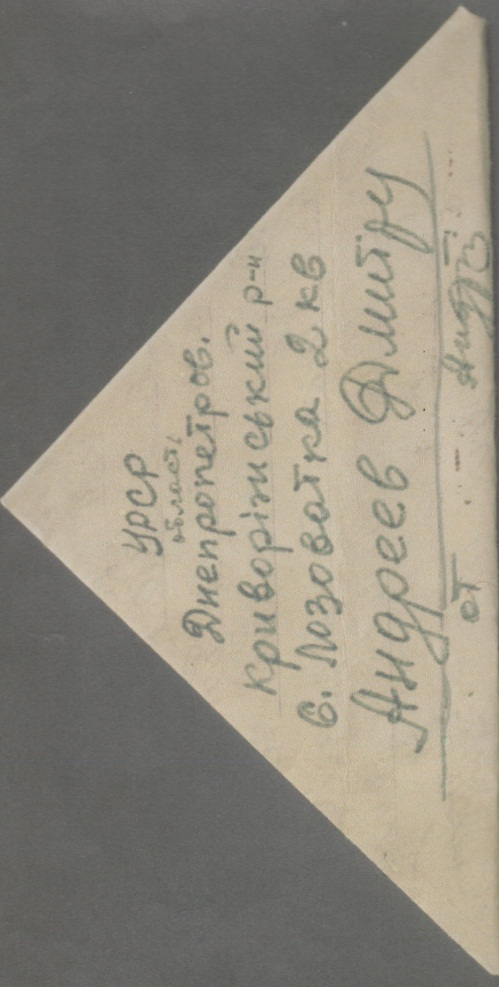 УРСР
область
Днепропетров.
Криворіжський р-н
с. Лозоватка 2 кв
Андреев Дмитру
от